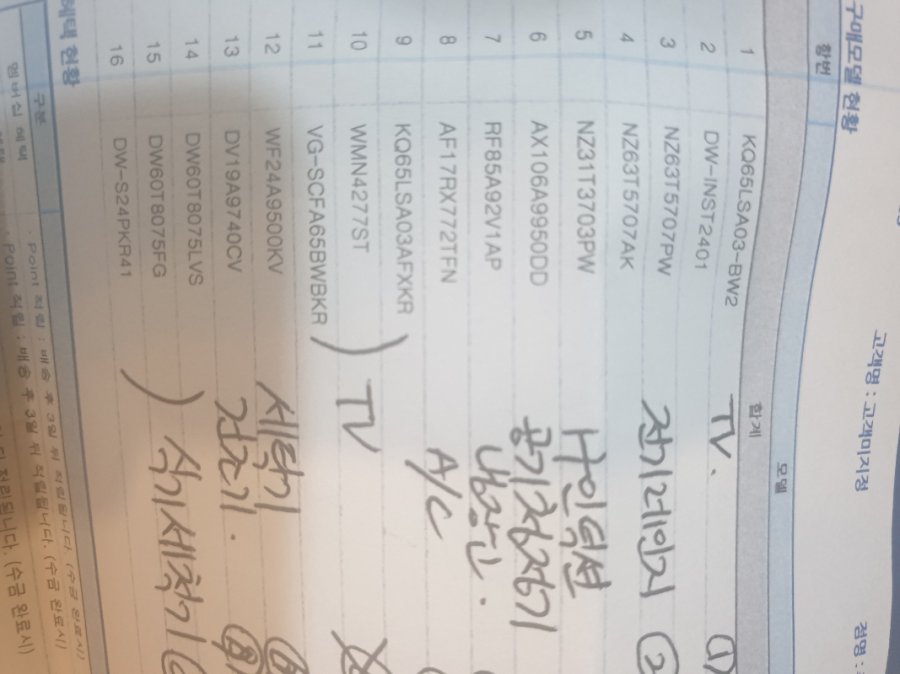 고객명 : 고객미지정
점명 :
구매모델 현황
항번 모델
합계
1 KQ65LSA03-BW2 TV. ①
2 DW-INST2401
3 NZ63T5707PW 전기레인지 ②
4 NZ63T5707AK
5 NZ31T3703PW 1구인덕션
6 AX106A9950DD 공기청정기
7 RF85A92V1AP 냉장고.
8 AF17RX772TFN A/C
9 KQ65LSA03AFXKR
10 WMN4277ST ) TV
11 VG-SCFA65BWBKR
12 WF24A9500KV 세탁기
13 DV19A9740CV 건조기. ⑧
14 DW60T8075LVS
15 DW60T8075FG ) 식기세척기
16 DW-S24PKR41
혜택 현황
구분
멤버십 혜택 . Point 적립 : 배송 후 3일 뒤 적립됩니다. (수금 완료시)
. Point 적립 : 배송 후 3일 뒤 적립됩니다. (수금 완료시)
적립됩니다. (수금 완료시)